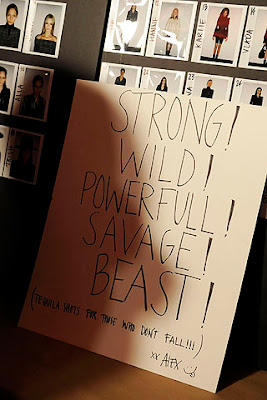 KARLIE
VLADA
ALLA
STRONG!
WILD!
POWERFULL!
SAVAGE!
BEAST!
(TEQUILA SHOTS FOR THOSE WHO DON'T FALL!!!)
xx ALEX